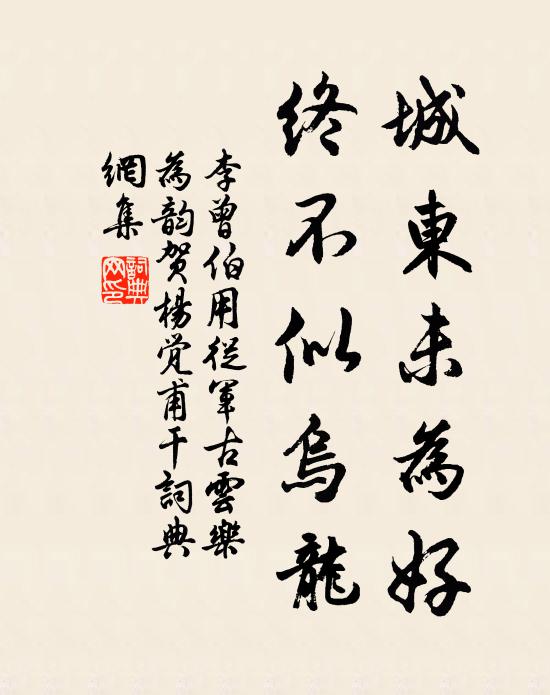 城東未為好
終不似烏龍
李曾伯用從軍古雲樂
為韵贺楊覚甫干詞典
網集
詞典網印